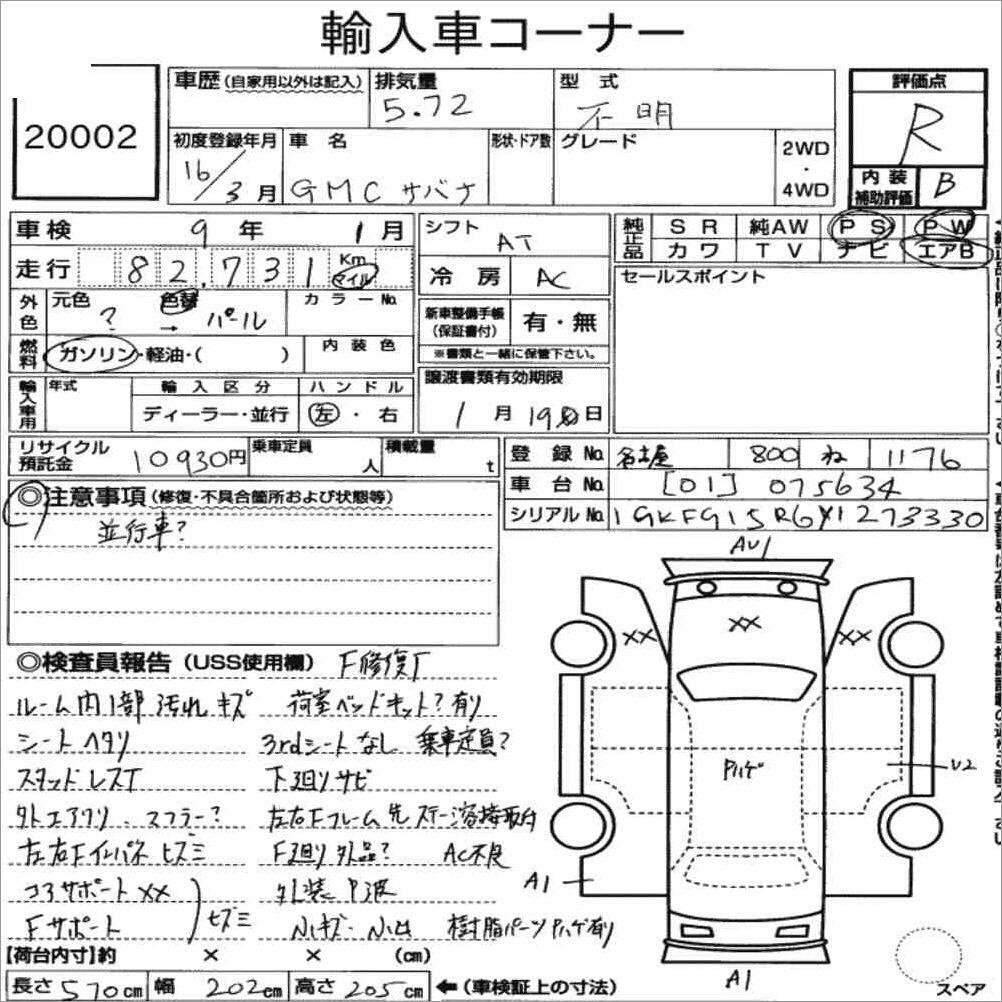 輸入車コーナー
20002
車歴(自家用以外は記入)
排気量
5.72
型式
不明
評価点
R
初度登録年月
16/3月
車名
GMC サバナ
形状・ドア数
グレード
2WD
・
4WD
内装
補助評価
B
車検 9年 1月
走行 82,731 Km マイル
シフト
AT
冷房 AC
純正品
SR 純AW PS PW
カワ TV ナビ エアB
セールスポイント
外色
元色
?
色替
→ パール
カラーNo.
新車整備手帳
(保証書付)
有・無
※書類と一緒に保管下さい。
燃料
ガソリン・軽油・( )
内装色
輸入車用
年式
輸入区分
ディーラー・並行
ハンドル
左・右
譲渡書類有効期限
1月19日
リサイクル
預託金
10930円
乗車定員
人
積載量
t
登録No. 名古屋 800 ね 1176
車台No. [01] 075634
シリアルNo. 1GKFG15R6Y1273330
◎注意事項(修復・不具合箇所および状態等)
並行車?
◎検査員報告(USS使用欄) F修復了
ルーム内1部 汚れ キズ
荷室ベッドキット?有り
シート ヘタリ
3rdシートなし 乗車定員?
スタッドレスT
下廻りサビ
外エアクリ、マフラー?
左右Fフレーム先 ステー溶接取台
左右Fインパネ ヒズミ
F廻り外品? AC不良
コアサポートXX
外装P波
Fサポート
ヒズミ
小キズ・小凹 樹脂パーツPハゲ有り
AU1
XX
XX
XX
Pハゲ
U2
A1
A1
スペア
【荷台内寸】約 × × (cm)
長さ570cm 幅 202cm 高さ205cm ←(車検証上の寸法)